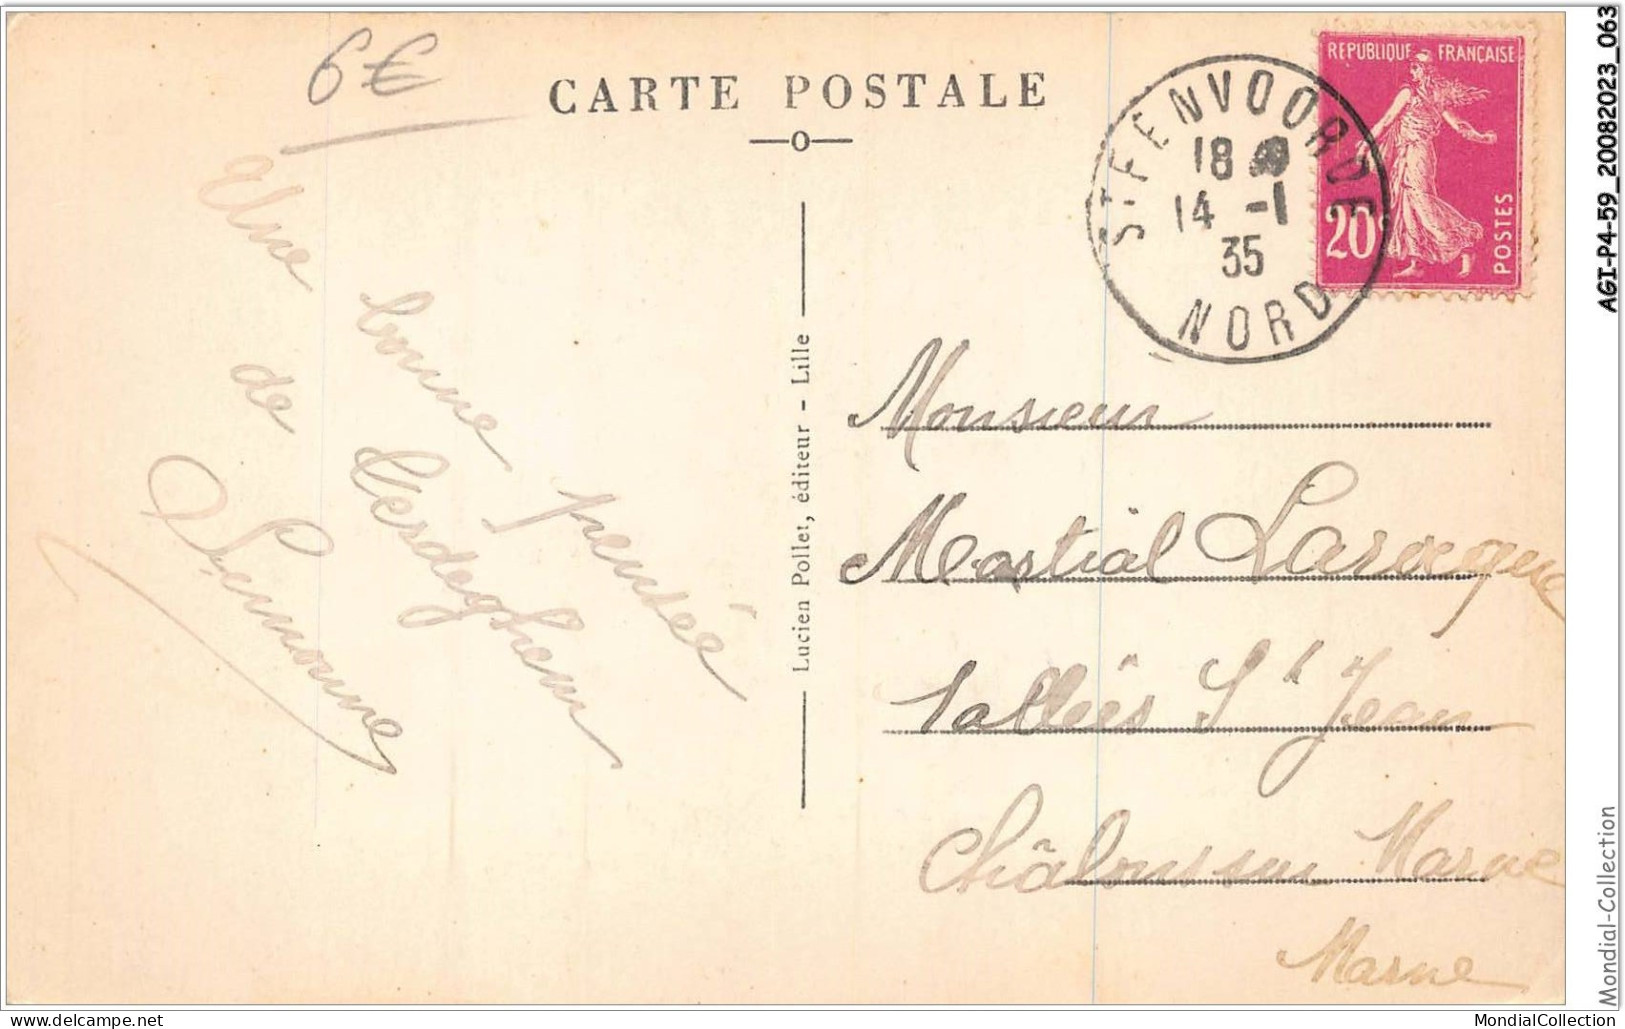 6€
CARTE POSTALE
STEENVOORDE
18
14 -1
35
NORD
REPUBLIQUE FRANÇAISE
20c
POSTES
Une bonne pensée
de Terdeghem
Simonne
Lucien Pollet, éditeur - Lille
Monsieur
Martial Larocque
Vallées St Jean
Châlons sur Marne
Marne
AGI-P4-59_20082023_063
Mondial-Collection
delcampe.net
MondialCollection